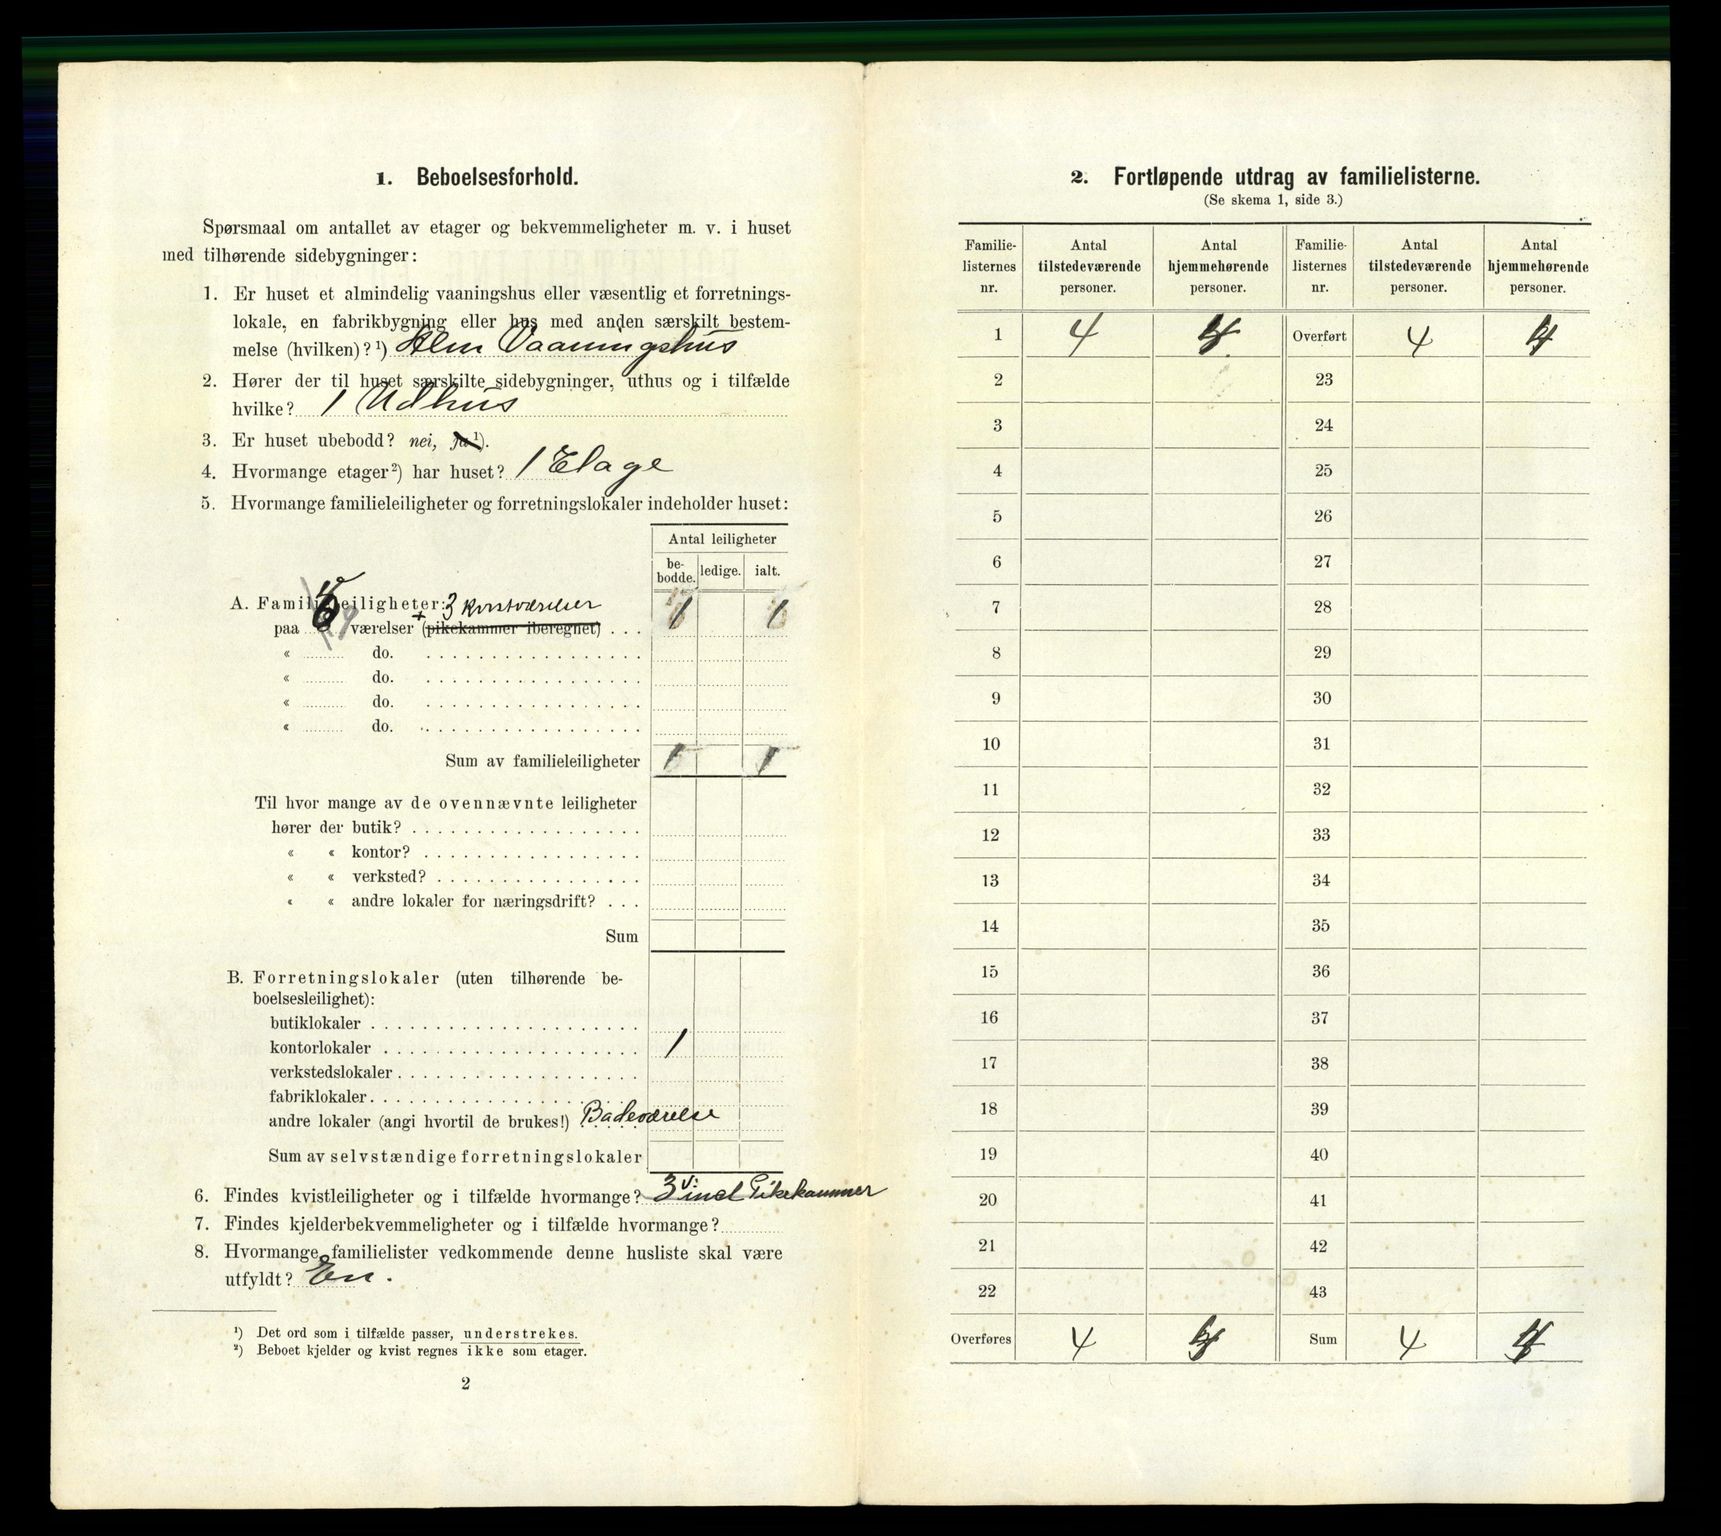 1. Beboelsesforhold.
Spørsmaal om antallet av etager og bekvemmeligheter m. v. i huset
med tilhørende sidebygninger:
1. Er huset et almindelig vaaningshus eller væsentlig et forretnings-
lokale, en fabrikbygning eller hus med anden særskilt bestem-
melse (hvilken)?¹) Alm Vaaningshus
2. Hører der til huset særskilte sidebygninger, uthus og i tilfælde
hvilke? 1 Udhus
3. Er huset ubebodd? nei, ja¹).
4. Hvormange etager²) har huset? 1 Etage
5. Hvormange familieleiligheter og forretningslokaler indeholder huset:
Antal leiligheter
be-bodde. ledige. ialt.
A. Familieleiligheter: 3 Kvistværelser
paa værelser + (pikekammer iberegnet) . . . 1 1
« do.
« do.
« do.
« do.
Sum av familieleiligheter 1 1
Til hvor mange av de ovennævnte leiligheter
hører der butik?
« « kontor?
« « verksted?
« « andre lokaler for næringsdrift?
Sum
B. Forretningslokaler (uten tilhørende be-
boelsesleilighet):
butiklokaler
kontorlokaler 1
verkstedslokaler
fabriklokaler
andre lokaler (angi hvortil de brukes!) Badeværelse
Sum av selvstændige forretningslokaler
6. Findes kvistleiligheter og i tilfælde hvormange? 3 v: incl Pikekammer
7. Findes kjelderbekvemmeligheter og i tilfælde hvormange?
8. Hvormange familielister vedkommende denne husliste skal være
utfyldt? En.
¹) Det ord som i tilfælde passer, understrekes.
²) Beboet kjelder og kvist regnes ikke som etager.
2
2. Fortløpende utdrag av familielisterne.
(Se skema 1, side 3.)
Familie-listernes nr. Antal tilstedeværende personer. Antal hjemmehørende personer. Familie-listernes nr. Antal tilstedeværende personer. Antal hjemmehørende personer.
1 4 4 Overført 4 4
2 23
3 24
4 25
5 26
6 27
7 28
8 29
9 30
10 31
11 32
12 33
13 34
14 35
15 36
16 37
17 38
18 39
19 40
20 41
21 42
22 43
Overføres 4 4 Sum 4 4